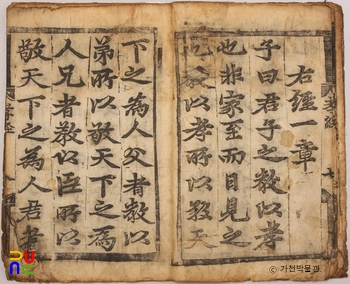 右經一章
子曰君子之教以孝
也非家至而日見之
也教以孝所以敬天
下之為人父者教以
弟所以敬天下之為
人兄者教以臣所以
敬天下之為人君者
ⓒ 가천박물관